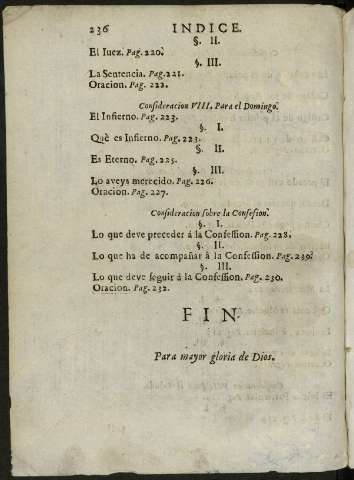 236 INDICE.
§. II.
El Iuez. Pag. 220.
§. III.
La Sentencia. Pag. 221.
Oracion. Pag. 222.
Consideracion VIII. Para el Domingo.
El Infierno. Pag. 223.
§. I.
Què es Infierno. Pag. 223.
§. II.
Es Eterno. Pag. 225.
§. III.
Lo aveys merecido. Pag. 226.
Oracion. Pag. 227.
Consideracion sobre la Confesion.
§. I.
Lo que deve preceder á la Confession. Pag. 228.
§. II.
Lo que ha de acompañar à la Confession. Pag. 230.
§. III.
Lo que deve seguir á la Confession. Pag. 230.
Oracion. Pag. 232.
FIN.
Para mayor gloria de Dios.